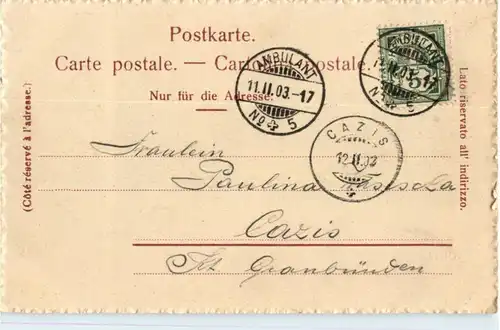 Postkarte.
Carte postale. — Cartolina postale.
Nur für die Adresse.
(Côté réservé à l'adresse.)
Lato riservato all' indirizzo.
AMBULANT
11.II.03.-17
No 5
AMBULANT
11.II.03.-17
No 5
5
CAZIS
12.II.03
Fräulein
Paulina
Cazis
Kt. Graubünden